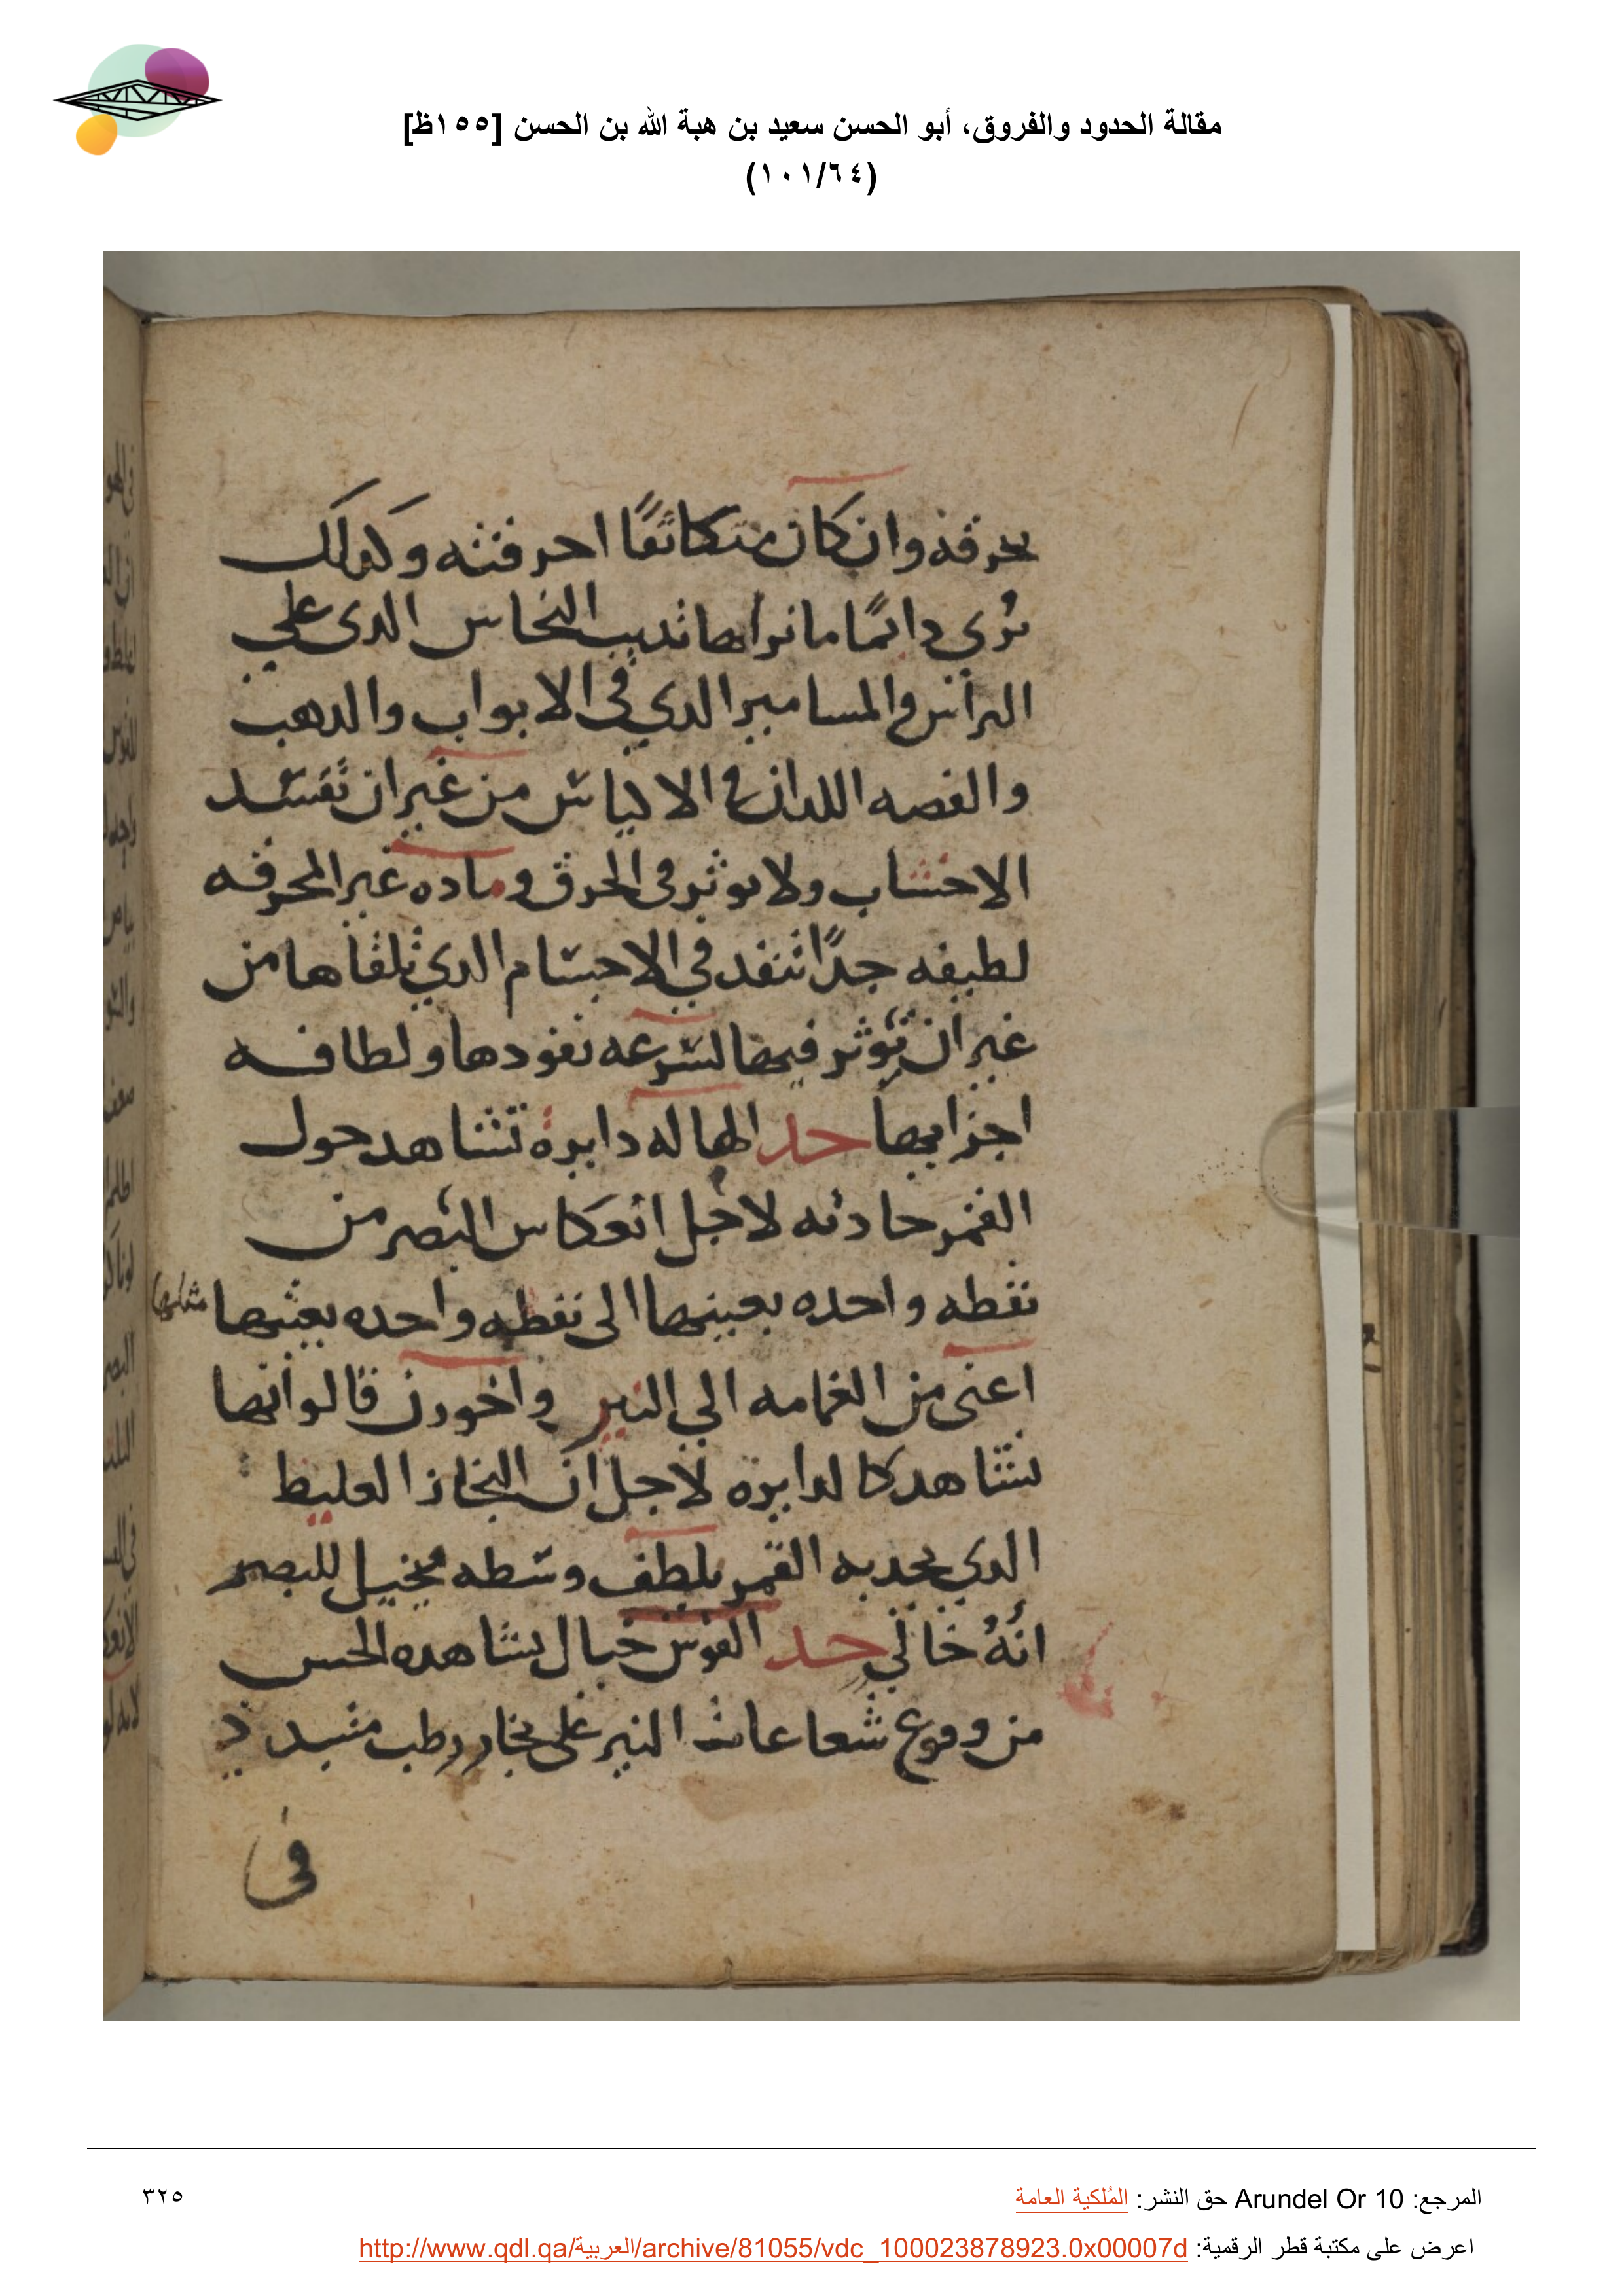 مقالة الحدود والفروق، أبو الحسن سعيد بن هبة الله بن الحسن [١٥٥ظ]
(١٠١/٦٤)
يحرقه وان كان متكاثفًا احرقته وكدلك
نرُي دايمًا ما نراها تديب النحاس الدى علي
التراس والمسامير الدي في الابواب والدهب
والفضه اللدان في الاكياس من غير ان تفسد
الاخشاب ولا يوثر فى الخرق وماده غير المحرقه
لطيفه جدًا تنفد في الاجسام الدي تلقاها من
غير ان توثر فيها لسرعه نفودها ولطافه
اجزايها حد الهاله دايرة تشاهد حول
القمر حادثه لاجل انعكاس البصر من
نقطه واحده بعينها الى نقطه واحده بعينها
اعنى من الغمامه الي النير واخورن قالو انها
تشاهد كالدايرة لاجل ان البخار الغليظ
الدي يجد به القمر يلطف وسطه فيخيل للبصر
انهُ خالي حد القوس خيال يشاهده الحس
من وقوع شعاعات النير على بخار رطب متبدد
في
المرجع: Arundel Or 10 حق النشر: المُلكية العامة
٣٢٥
اعرض على مكتبة قطر الرقمية: http://www.qdl.qa/العربية/archive/81055/vdc_100023878923.0x00007d